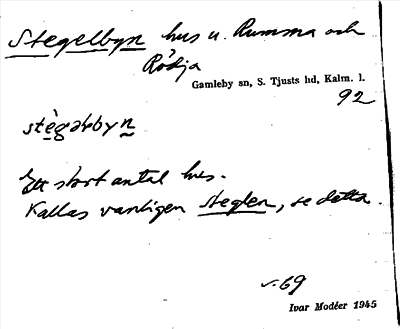 Stegelbyn hus u. Rumma och
Rödja
Gamleby sn, S. Tjusts hd, Kalm. l.
92
stègərbyn
Ett stort antal hus.
Kallas vanligen steglen, se detta.
s. 69
Ivar Modéer 1945